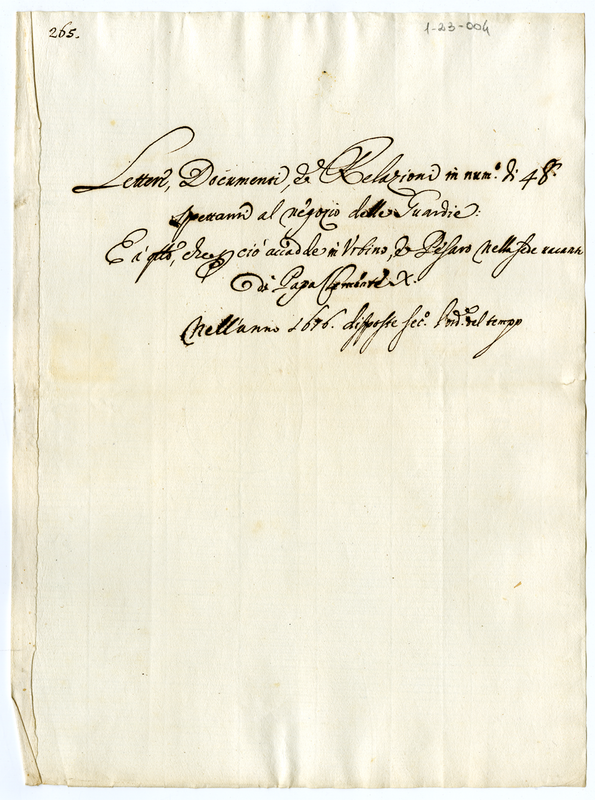 265.
1-23-004
Lettere, Documenti, et Relazioni in num.º di 48.
spettanti al negozio delle Guardie:
E di qtto, che p ciò accadde in Urbino, et Pesaro nella sede vacante
di Papa Clemente X.
Nell'anno 1676. disposte sec.º l'ord.e del tempo